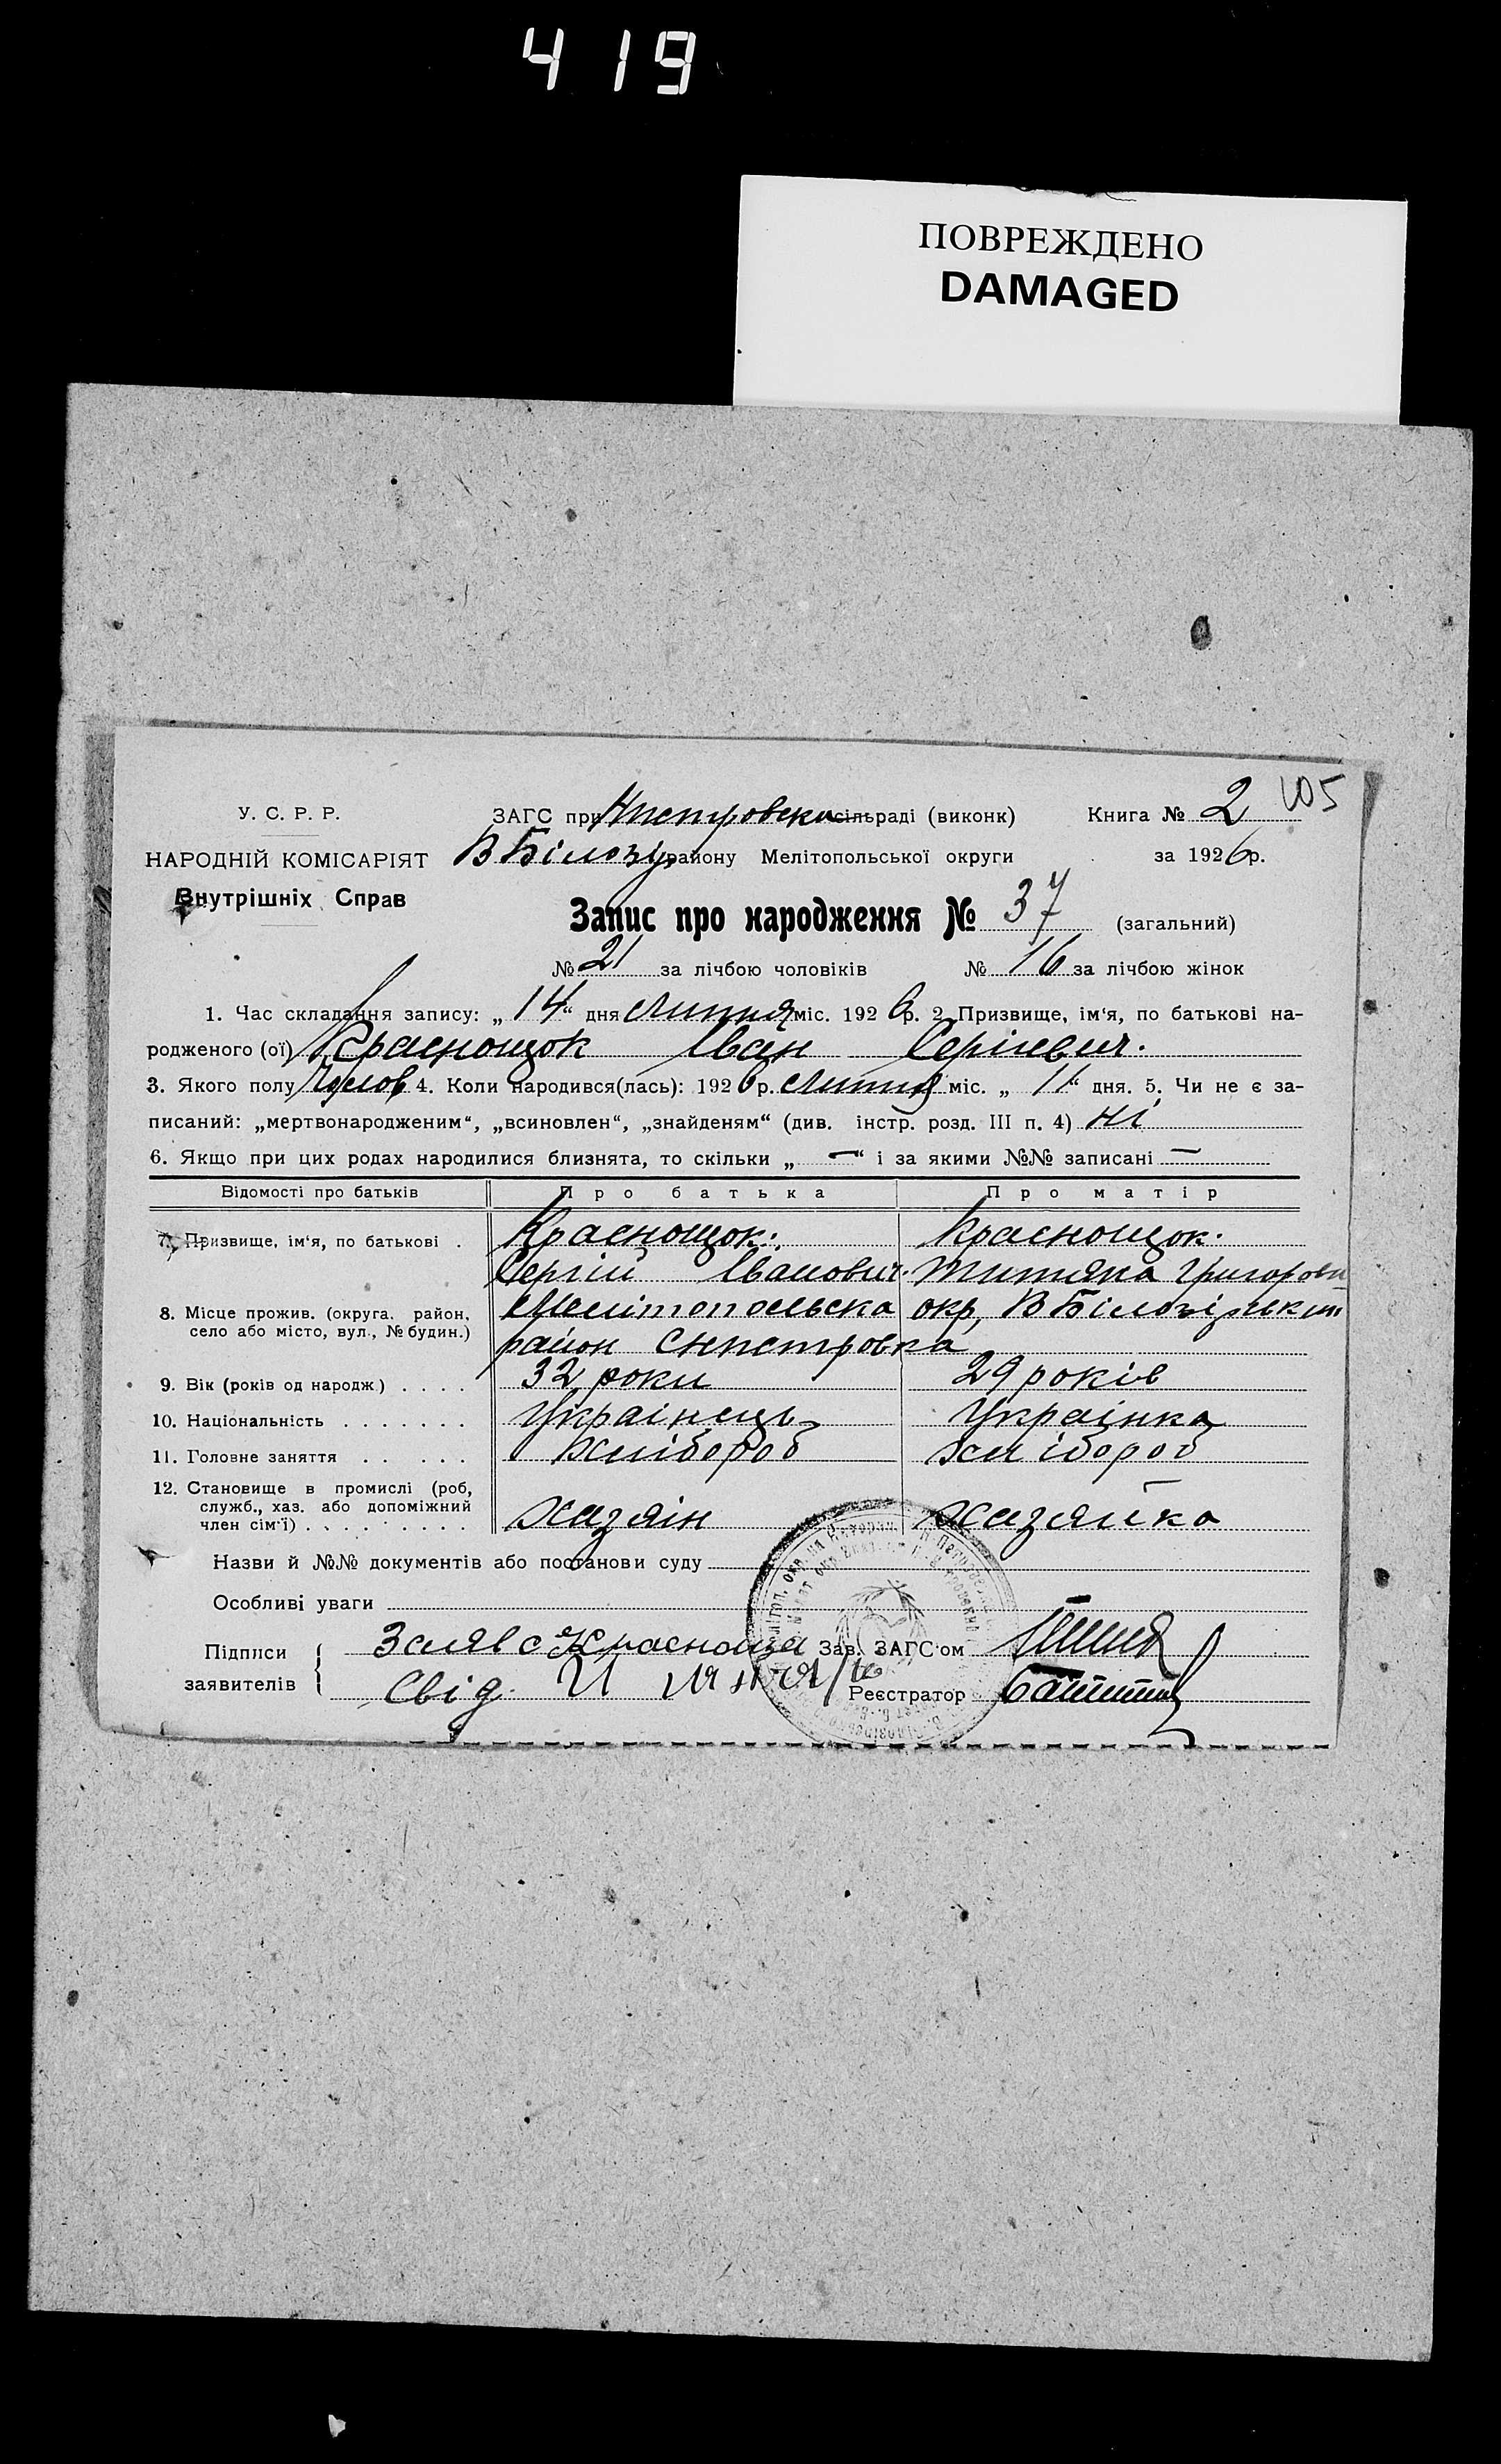 419
ПОВРЕЖДЕНО
DAMAGED
105
У. С. Р. Р.
НАРОДНІЙ КОМІСАРІЯТ
Внутрішніх Справ
ЗАГС при Нпетровска сільраді (виконк) Книга № 2
В Білозір району Мелітопольської округи за 1926 р.
Запис про народження № 37 (загальний)
№ 21 за лічбою чоловіків № 16 за лічбою жінок
1. Час складання запису: „14“ дня липня міс. 1926 р. 2. Призвище, ім‘я, по батькові на-
родженого (ої) Краснощок Іван Сергієвич.
3. Якого полу Чолов 4. Коли народився(лась): 1926 р. липня міс. „11“ дня. 5. Чи не є за-
писаний: „мертвонародженим“, „всиновлен“, „знайденям“ (див. інстр. розд. III п. 4) ні
6. Якщо при цих родах народилися близнята, то скільки „—“ і за якими №№ записані —
Відомості про батьків Про батька Про матір
7. Призвище, ім‘я, по батькові . Краснощок. Краснощок.
Сергій Іванович. Титяна Григорови
8. Місце прожив. (округа, район, село або місто, вул., № будин.) Мелітопольска окр, В Білозірський
район с Нпетровка
9. Вік (років од народж.) . . . . 32 роки 29 років
10. Національність . . . . . . . Українець Українка
11. Головне заняття . . . . . . Хлібороб хлібороб
12. Становище в промислі (роб, служб., хаз. або допоміжний член сім‘ї) . . . . . . . . . хазяін хазяйка
Назви й №№ документів або постанови суду
Особливі уваги
Підписи заявителів
Заяв с Краснощо Зав. ЗАГС‘ом
Свід. И Реєстратор